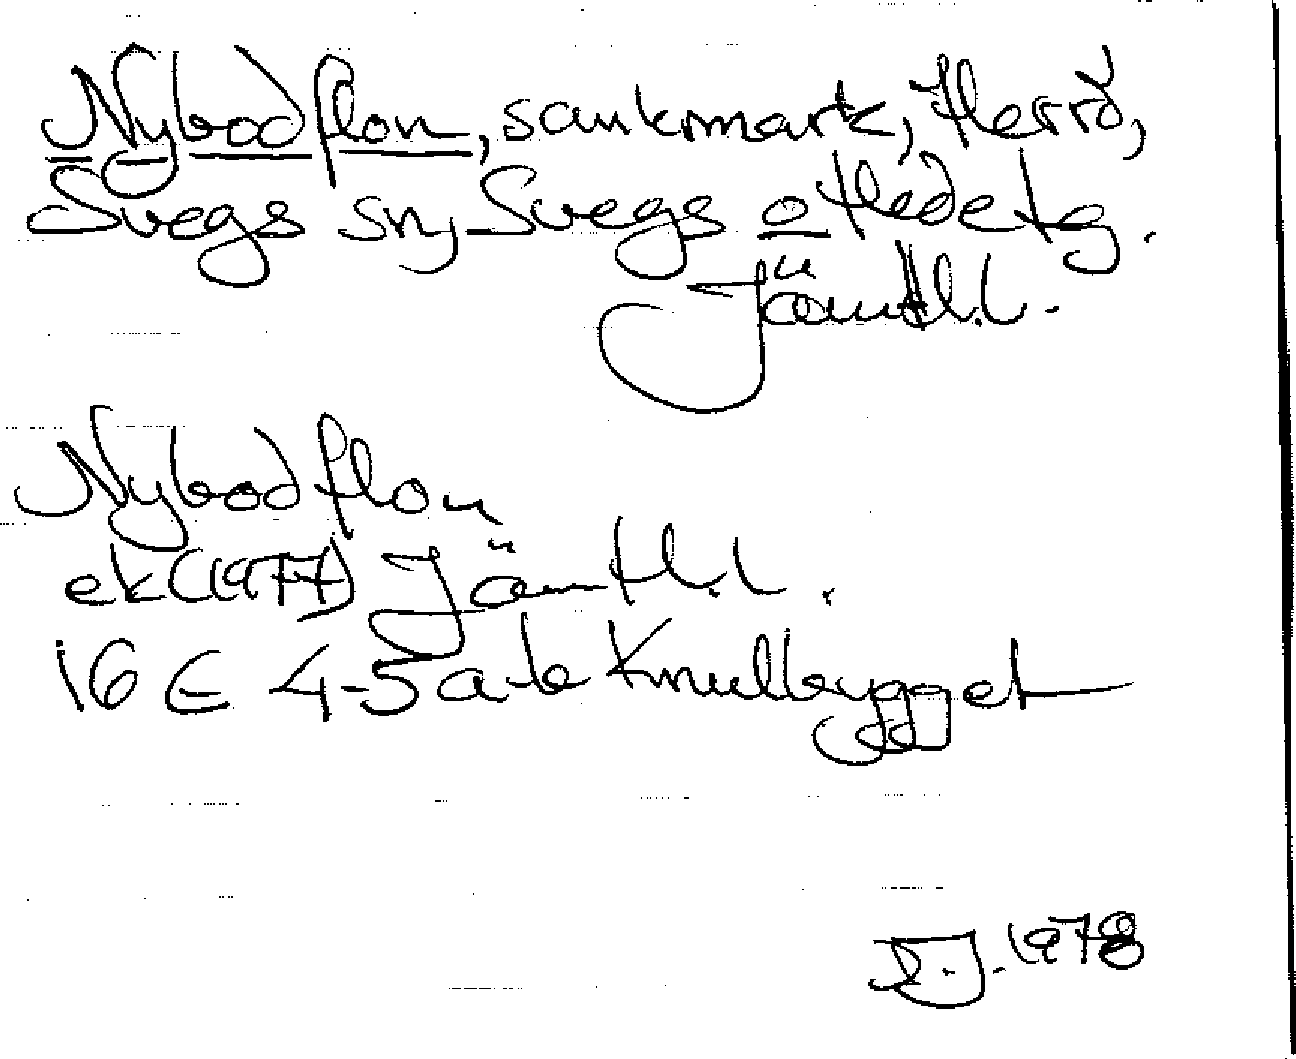 Nybodflon, sankmark, Herrö,
Svegs sn, Svegs o Hede tg.
Jämtl.l.
Nybodflon
ek (1977) Jämtl.l.
16 E 4-5 a-b Knullbygget
1978